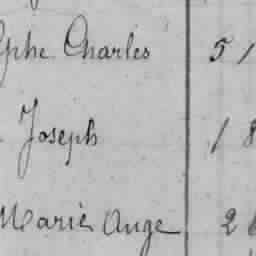 Charles 51
Joseph 18
Marie Ange 26